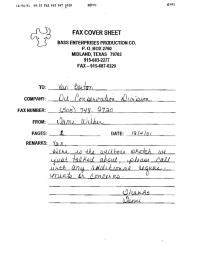 FAX COVER SHEET
BASS ENTERPRISES PRODUCTION CO.
P. O. BOX 2760
MIDLAND, TEXAS 79702
915-683-2277
FAX - 915-687-0329
TO: Van Barton
COMPANY: Oil Conservation Division
FAX NUMBER: 748 9720
FROM: Jami Wilber
PAGES: 2 DATE: 12/14/01
REMARKS: Van,
Here is the wellbore sketch we
just talked about, please call
with any additional require-
ments or concerns
Thanks
Jami